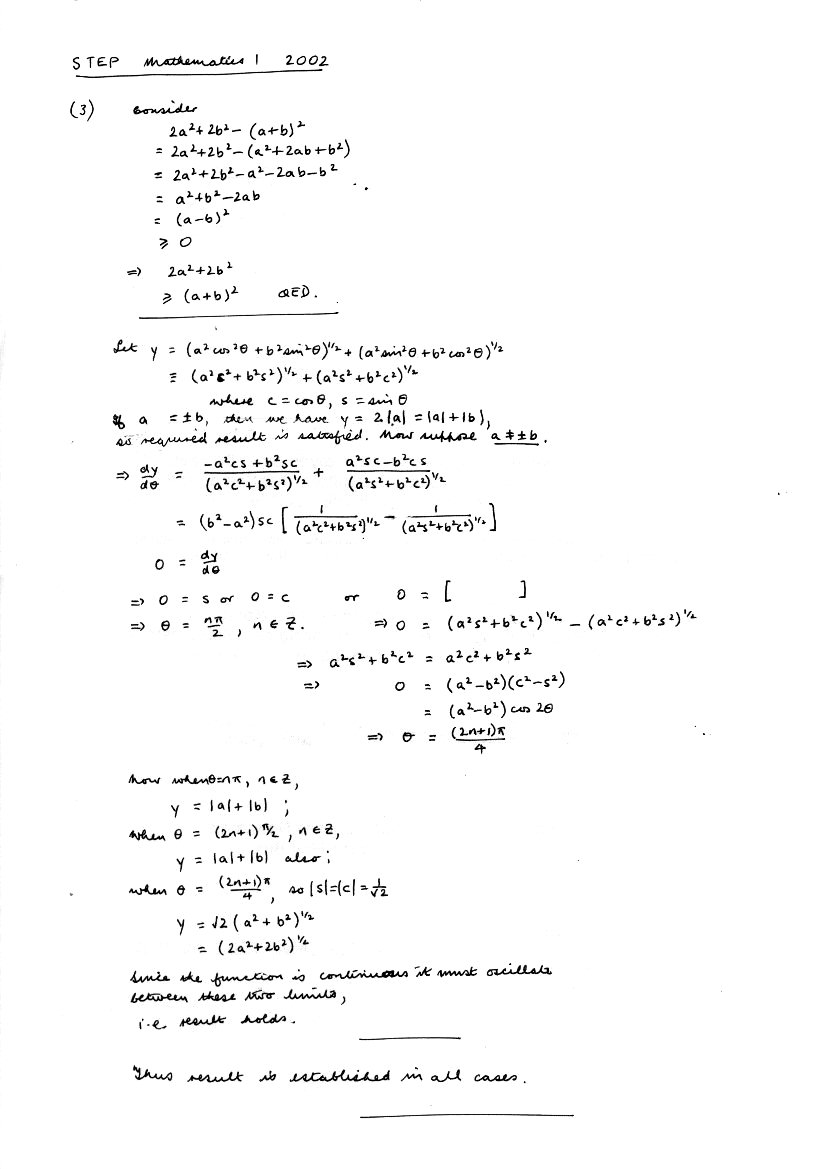 STEP Mathematics I 2002
(3) Consider
2a²+2b²-(a+b)²
= 2a²+2b²-(a²+2ab+b²)
= 2a²+2b²-a²-2ab-b²
= a²+b²-2ab
= (a-b)²
⩾ 0
⇒ 2a²+2b²
⩾ (a+b)² QED.
Let y = (a²cos²θ + b²sin²θ)^1/2 + (a²sin²θ + b²cos²θ)^1/2
≡ (a²c² + b²s²)^1/2 + (a²s² + b²c²)^1/2
where c = cosθ, s = sinθ
If a = ±b, then we have y = 2|a| = |a|+|b|,
so required result is satisfied. Now suppose a ≠ ±b.
⇒ dy/dθ = (-a²cs + b²sc)/(a²c²+b²s²)^1/2 + (a²sc-b²cs)/(a²s²+b²c²)^1/2
= (b²-a²)sc [ 1/(a²c²+b²s²)^1/2 - 1/(a²s²+b²c²)^1/2 ]
0 = dy/dθ
⇒ 0 = s or 0 = c or 0 = [ ]
⇒ θ = nπ/2, n ∈ Z. ⇒ 0 = (a²s²+b²c²)^1/2 - (a²c²+b²s²)^1/2
⇒ a²s²+b²c² = a²c²+b²s²
⇒ 0 = (a²-b²)(c²-s²)
= (a²-b²) cos 2θ
⇒ θ = (2n+1)π/4
Now when θ=nπ, n ∈ Z,
y = |a|+|b| ;
when θ = (2n+1)π/2, n ∈ Z,
y = |a|+|b| also;
when θ = (2n+1)π/4, so |s|=|c|=1/√2
y = √2 (a²+b²)^1/2
= (2a²+2b²)^1/2
Since the function is continuous it must oscillate
between these two limits,
i.e. result holds.
Thus result is established in all cases.